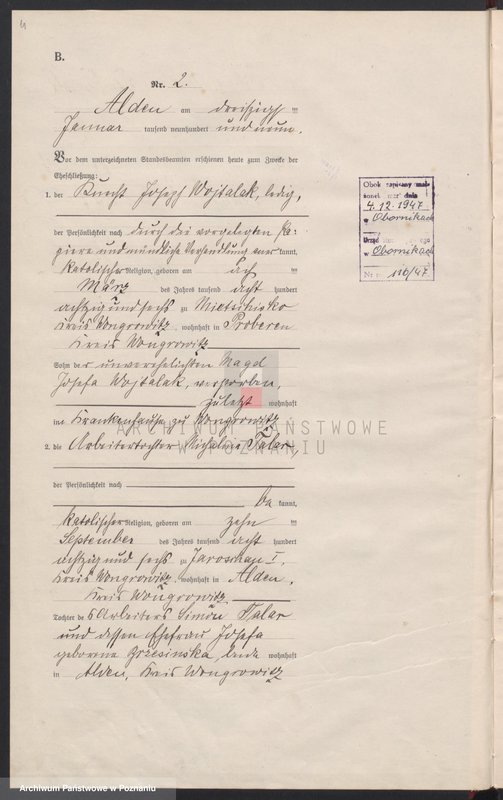 4
B.
Nr. 2.
Alden am dreißigsten
Januar tausend neunhundert und neun.
Vor dem unterzeichneten Standesbeamten erschienen heute zum Zwecke der
Eheschließung:
1. der Knecht Joseph Wojtalak, ledig,
der Persönlichkeit nach durch die vorgelegten Pa-
piere und mündliche Verhandlung aner kannt,
katholischer Religion, geboren am acht ten
März des Jahres tausend acht hundert
achtzig und sechs zu Mietschisko
Kreis Wongrowitz, wohnhaft in Proberen
Kreis Wongrowitz
Sohn der unverehelichten Magd
Josefa Wojtalak, verstorben,
zuletzt wohnhaft
im Krankenhause zu Wongrowitz
2. die Arbeitertochter Talar,
der Persönlichkeit nach
be kannt,
katholischer Religion, geboren am zehn ten
September des Jahres tausend acht hundert
achtzig und sechs zu I,
Kreis Wongrowitz, wohnhaft in Alden,
Kreis Wongrowitz
Tochter des Arbeiters Simon Talar
und dessen Ehefrau Josefa
geborene Brzesinska, beide wohnhaft
in Alden, Kreis Wongrowitz
Obok zapisany mał-
4.12.1947
w Obornikach
Urząd
w Obornikach
Nr 116/47
ARCHIWUM PAŃSTWOWE
W POZNANIU
Archiwum Państwowe w Poznaniu